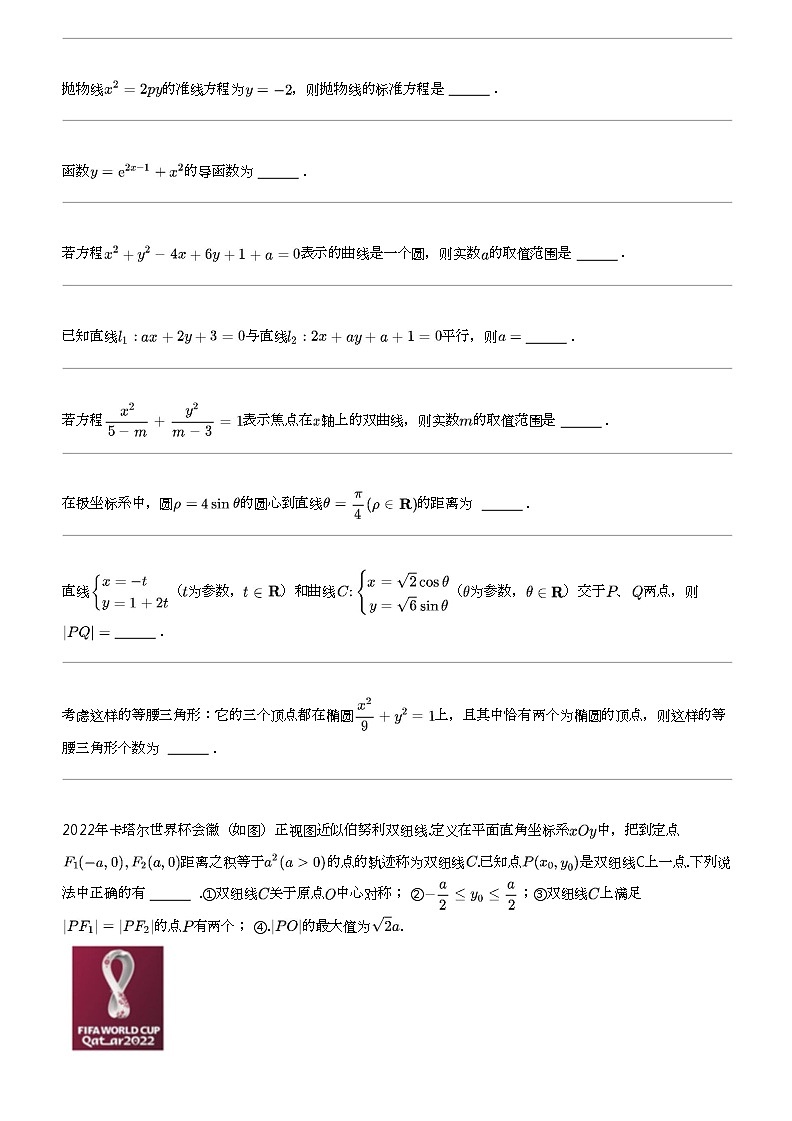 抛物线x² = 2py的准线方程为y = −2，则抛物线的标准方程是 ______ .
函数y = e^{2x−1} + x²的导函数为 ______ .
若方程x² + y² − 4x + 6y + 1 + a = 0表示的曲线是一个圆，则实数a的取值范围是 ______ .
已知直线l₁ : ax + 2y + 3 = 0与直线l₂ : 2x + ay + a + 1 = 0平行，则a = ______ .
若方程\frac{x²}{5 − m} + \frac{y²}{m − 3} = 1表示焦点在x轴上的双曲线，则实数m的取值范围是 ______ .
在极坐标系中，圆ρ = 4 sin θ的圆心到直线θ = \frac{π}{4} (ρ ∈ R)的距离为 ______ .
直线{x = −t, y = 1 + 2t（t为参数，t ∈ R）和曲线C: {x = √2 cos θ, y = √6 sin θ（θ为参数，θ ∈ R）交于P、Q两点，则
|PQ| = ______ .
考虑这样的等腰三角形：它的三个顶点都在椭圆\frac{x²}{9} + y² = 1上，且其中恰有两个为椭圆的顶点，则这样的等
腰三角形个数为 ______ .
2022年卡塔尔世界杯会徽（如图）正视图近似伯努利双纽线.定义在平面直角坐标系xOy中，把到定点
F₁(−a, 0), F₂(a, 0)距离之积等于a² (a > 0)的点的轨迹称为双纽线C.已知点P(x₀, y₀)是双纽线C上一点.下列说
法中正确的有 ______ .①双纽线C关于原点O中心对称； ②−\frac{a}{2} ≤ y₀ ≤ \frac{a}{2}；③双纽线C上满足
|PF₁| = |PF₂|的点P有两个； ④.|PO|的最大值为√2a.
FIFA WORLD CUP
Qatar2022